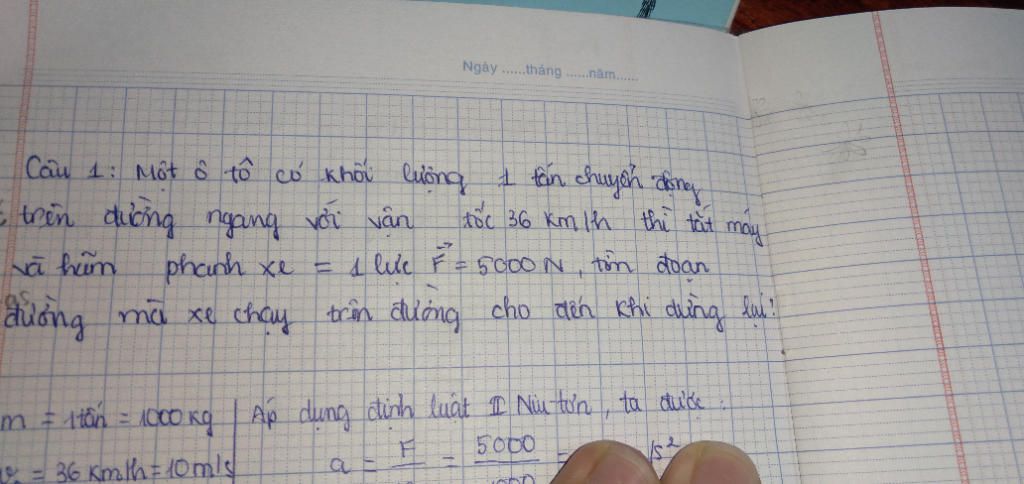 Ngày ......tháng ......năm......
Câu 1: Một ô tô có khối lượng 1 tấn chuyển động
trên đường ngang với vận tốc 36 km/h thì tắt máy
và hãm phanh xe = 1 lực F⃗ = 5000N, tìm đoạn
đường mà xe chạy trên đường cho đến khi dừng lại?
m = 1 tấn = 1000 kg | Áp dụng định luật II Niu tơn, ta được:
= 36 km/h = 10 m/s a = F = 5000 = /s²